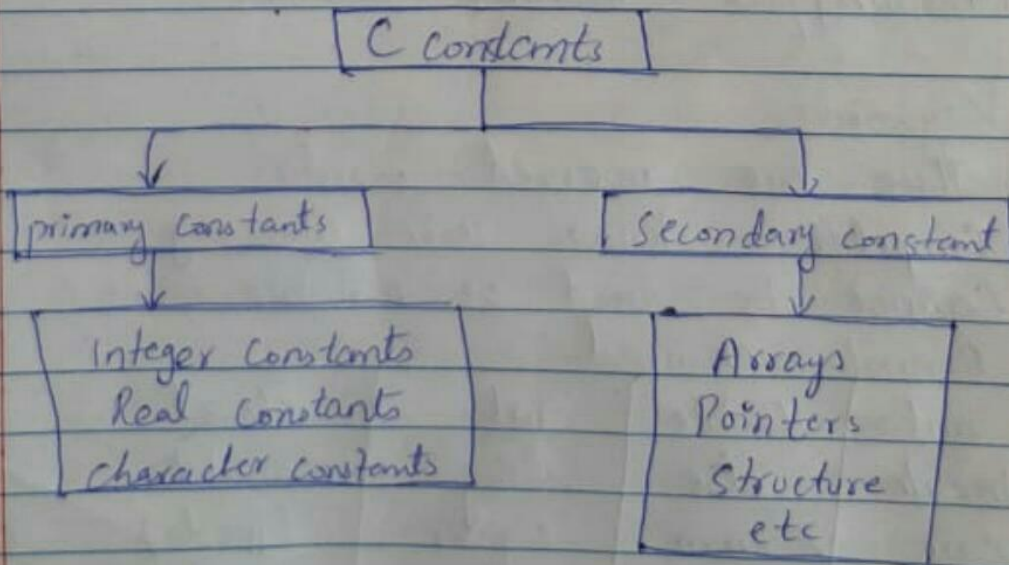 C constants
primary constants
Secondary constant
Integer Constants
Real Constants
character constants
Arrays
Pointers
Structure
etc